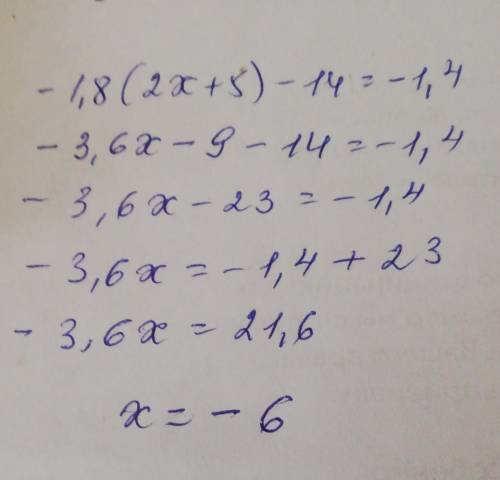 - 1,8(2x+5) - 14 = -1,4
- 3,6x - 9 - 14 = -1,4
- 3,6x - 23 = -1,4
- 3,6x = -1,4 + 23
- 3,6x = 21,6
x = - 6